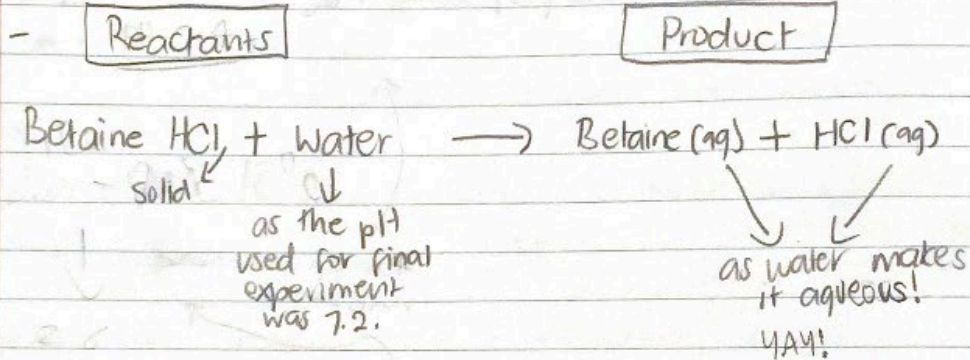 - Reactants Product
Betaine HCl + Water → Betaine (aq) + HCl (aq)
solid
as the pH
used for final
experiment
was 7.2.
as water makes
it aqueous!
YAY!